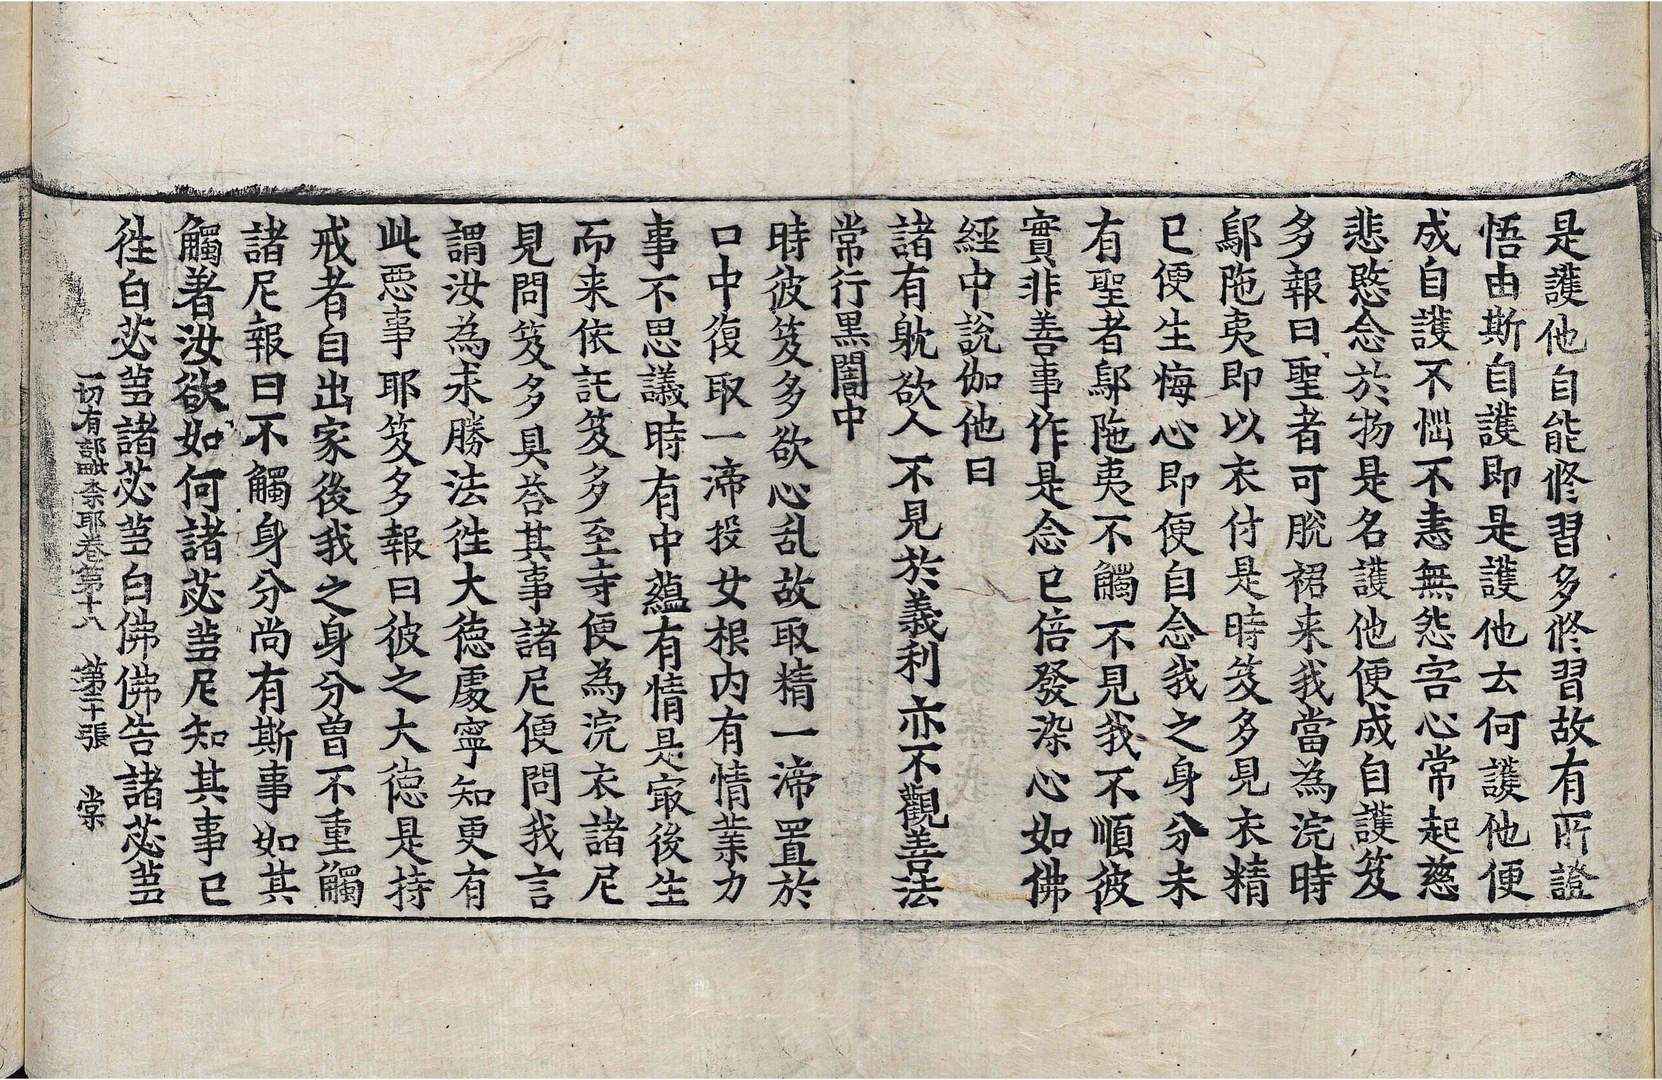 是護他自能修習多修習故有所證
悟由斯自護即是護他云何護他便
成自護不惱不恚無怨害心常起慈
悲愍念於物是名護他便成自護笈
多報曰聖者可脫裙来我當為浣時
鄔陁夷即以衣付是時笈多見衣精
已便生悔心即便自念我之身分未
有聖者鄔陁夷不觸不見我不順彼
實非善事作是念已倍發染心如佛
經中說伽他曰
諸有躭欲人不見於義利亦不觀善法
常行黑闇中
時彼笈多欲心乱故取精一渧置於
口中復取一渧投女根内有情業力
事不思議時有中蘊有情是㝡後生
而来依託笈多至寺便為浣衣諸尼
見問笈多具荅其事諸尼便問我言
謂汝為求勝法徃大德處寧知更有
此惡事耶笈多報曰彼之大德是持
戒者自出家後我之身分曾不重觸
諸尼報曰不觸身分尚有斯事如其
觸著汝欲如何諸苾蒭尼知其事已
徃白苾蒭諸苾蒭白佛佛告諸苾蒭
一切有部毗柰耶卷第十八 第二十張 棠